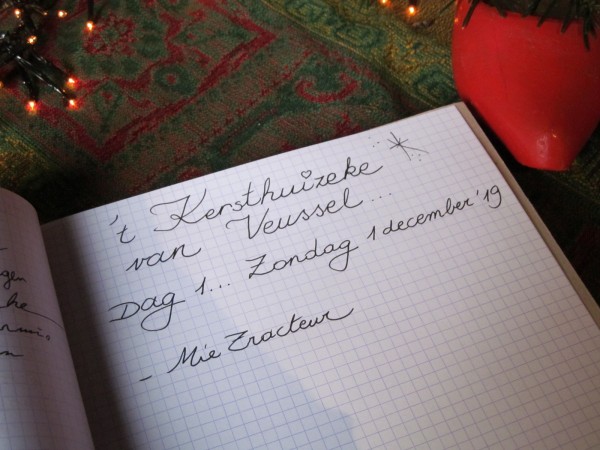 't Kersthuizeke
van Veussel...
Dag 1... Zondag 1 december '19
- Mie Tracteur